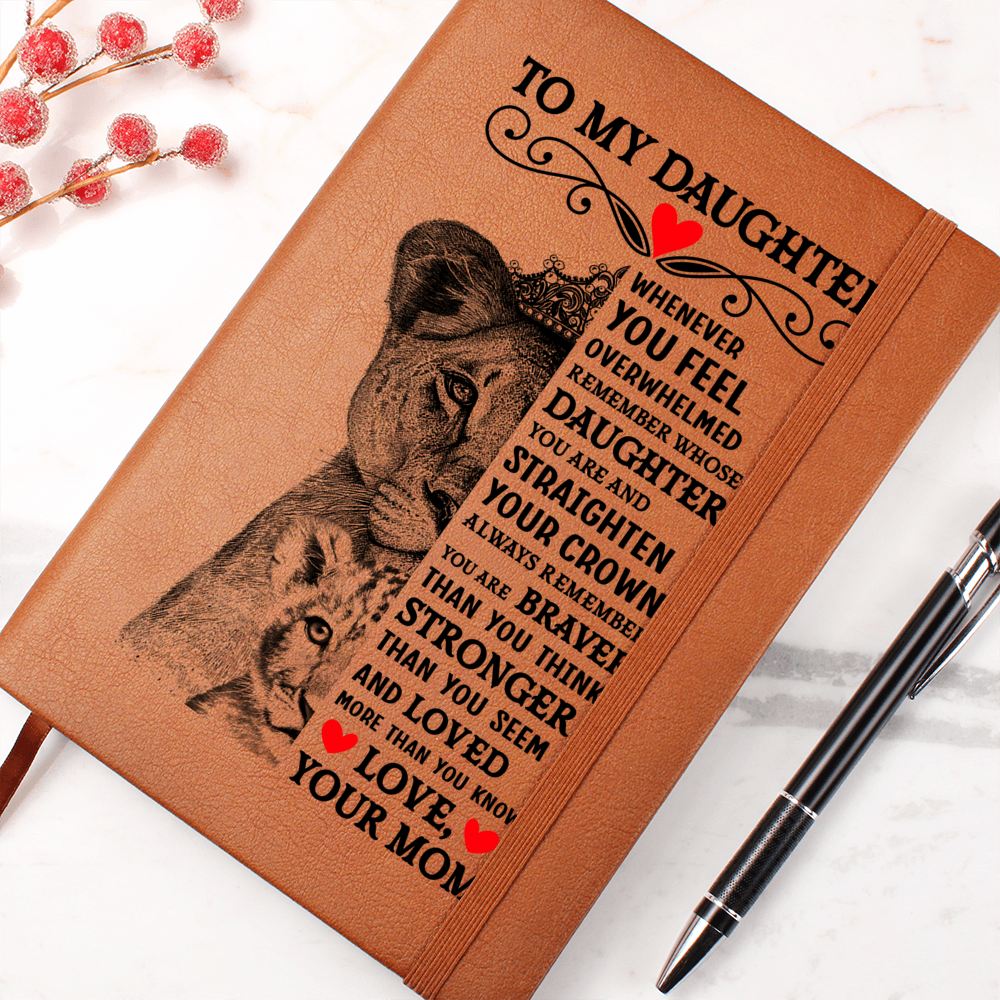 TO MY DAUGHTER
WHENEVER
YOU FEEL
OVERWHELMED
REMEMBER WHOSE
DAUGHTER
YOU ARE AND
STRAIGHTEN
YOUR CROWN
ALWAYS REMEMBER
YOU ARE BRAVER
THAN YOU THINK
STRONGER
THAN YOU SEEM
AND LOVED
MORE THAN YOU KNOW
LOVE,
YOUR MOM